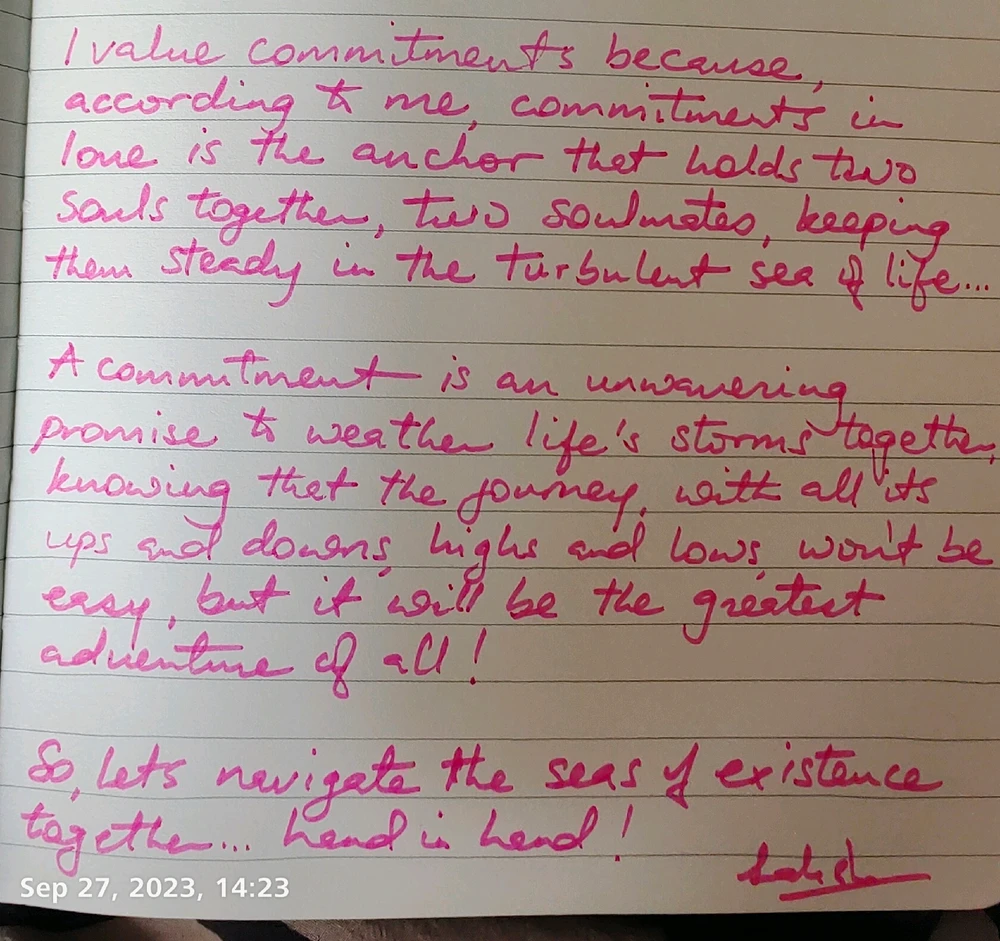 I value commitments because,
according to me, commitments in
love is the anchor that holds two
souls together, two soulmates, keeping
them steady in the turbulent sea of life...
A commitment is an unwavering
promise to weather life's storms together,
knowing that the journey, with all its
ups and downs, highs and lows, won't be
easy, but it will be the greatest
adventure of all!
So, lets navigate the seas of existence
together... hand in hand!
Sep 27, 2023, 14:23